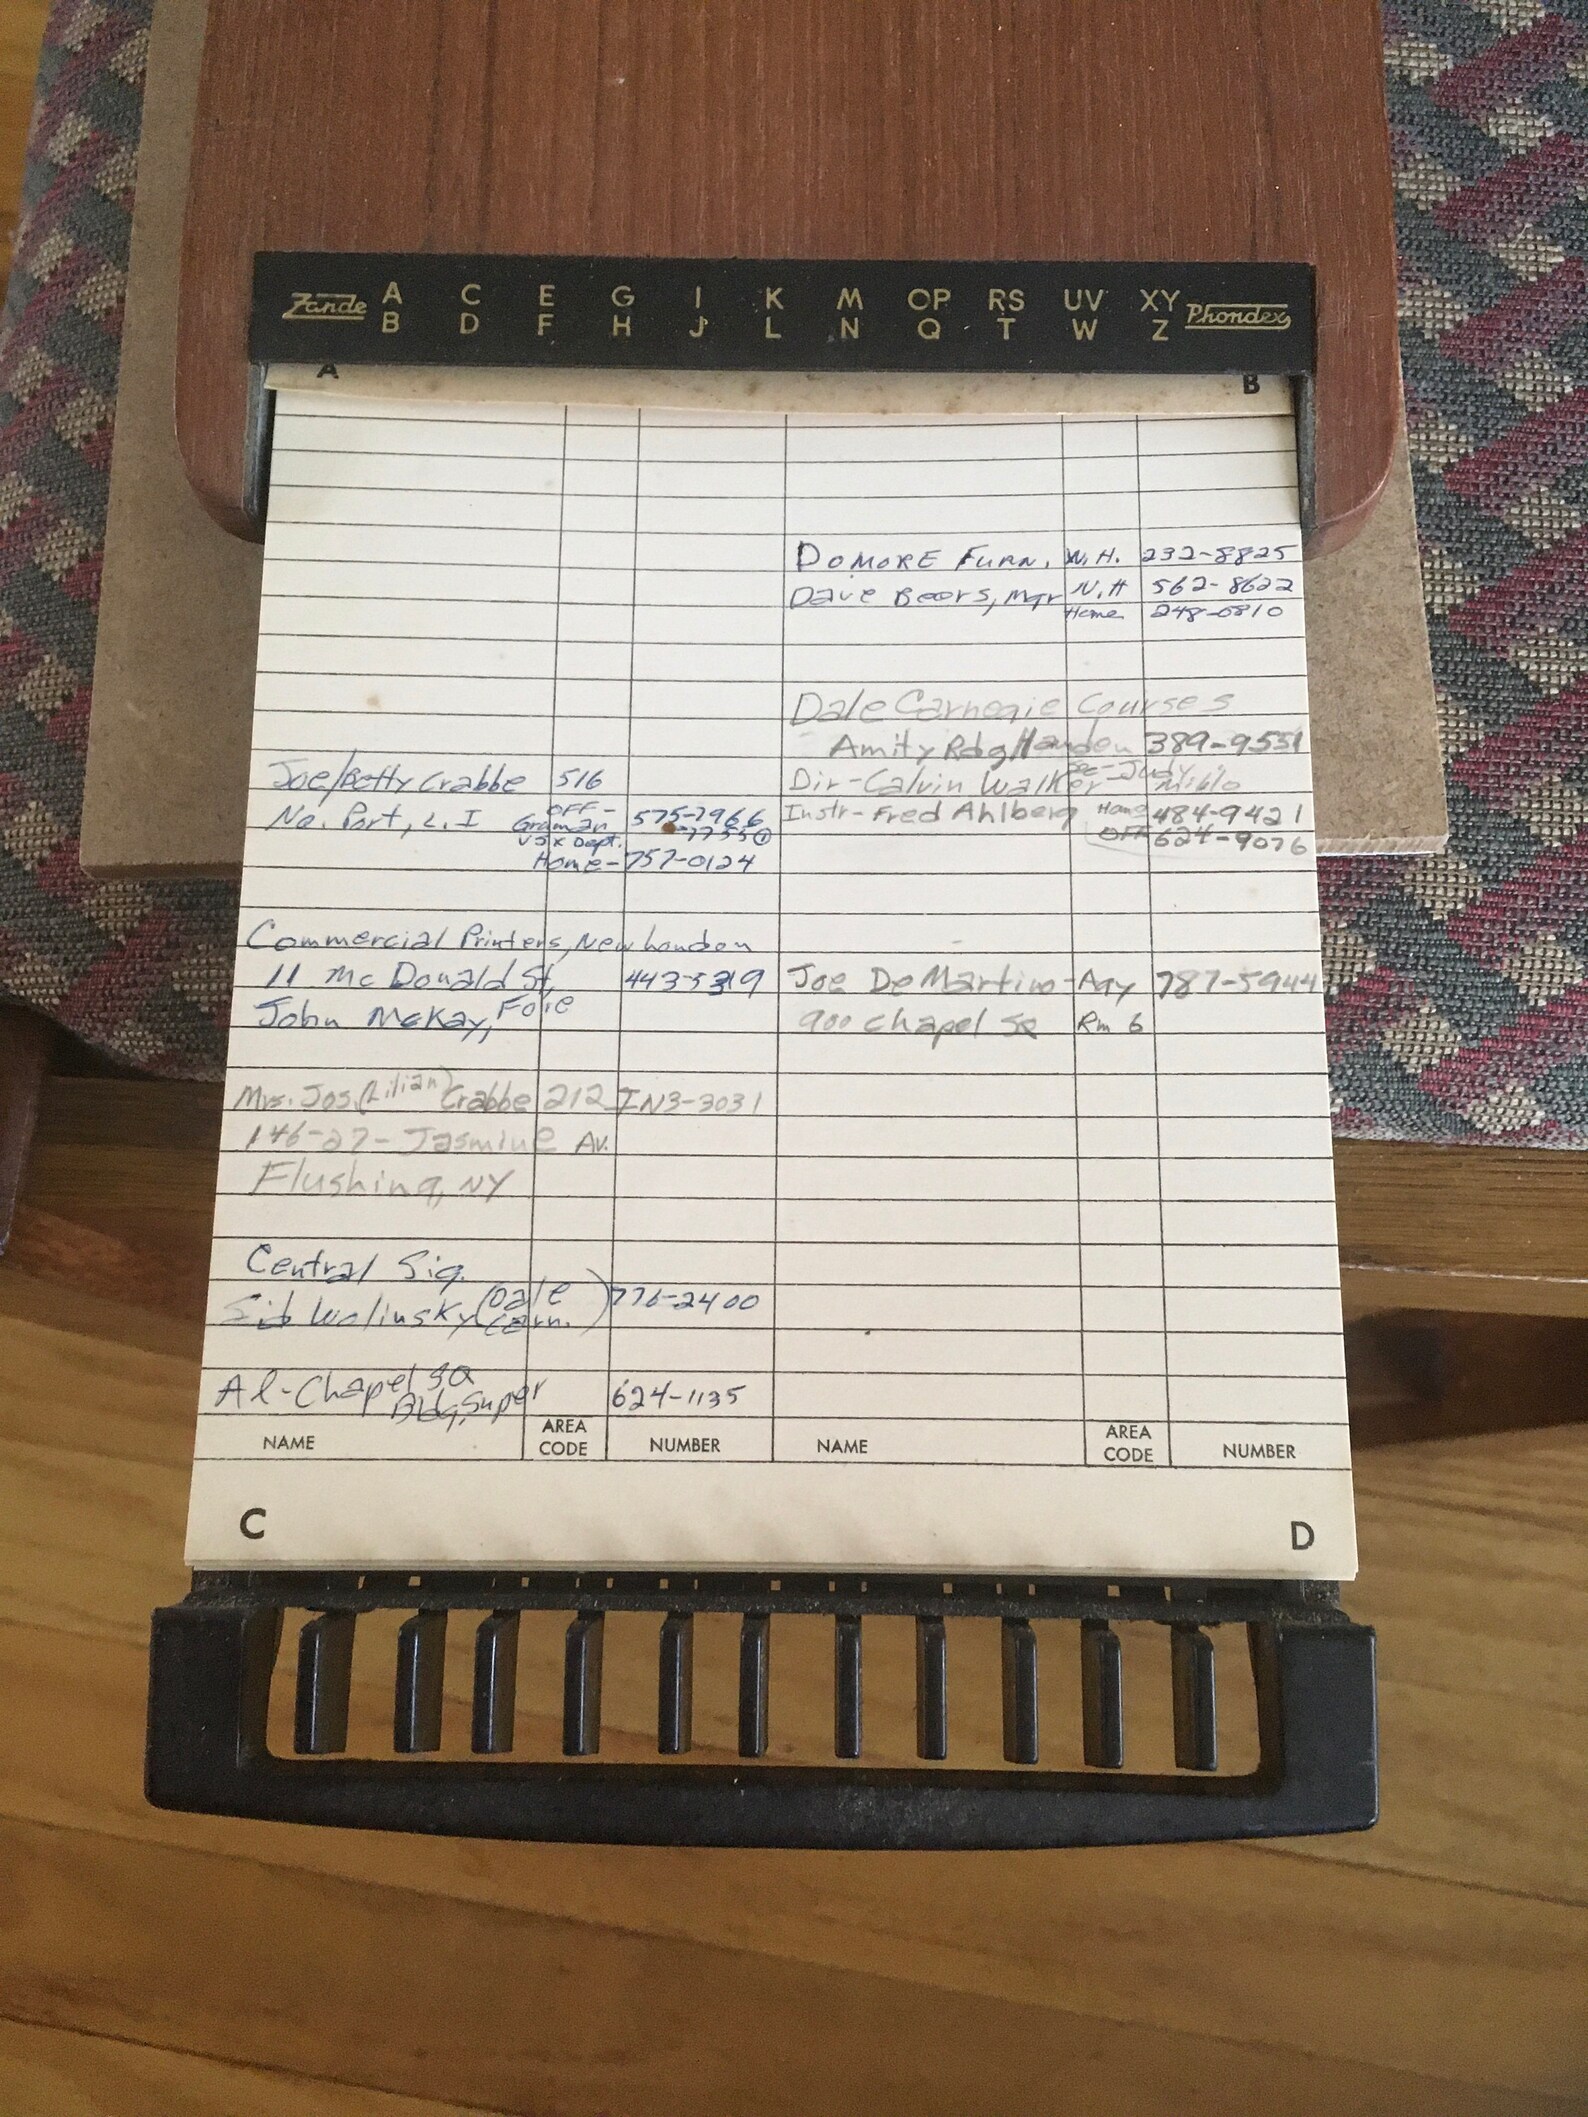 Zande A C E G I K M OP RS UV XY Phondex
B D F H J L N Q T W Z
A B
DOMORE FURN. N.H. 232-8825
Dave Beers, Mgr N.H 562-8622
Home 248-0810
Dale Carnegie Courses
Amity Rdg Hamden 389-9551
Joe/Betty Crabbe 516
No. Port, L.I OFF- 575-7966
Gruman -7755
Dept.
Home-757-0124
Dir-Calvin Walker See-Judy
Instr-Fred Ahlberg Home 484-9421
OFF 624-9076
Commercial Printers, New London
11 McDonald St, 443-5319
John McKay,
Joe DeMartino-Agy 787-5944
900 Chapel SQ Rm 6
Mrs. Jos. (Lilian) Crabbe 212 IN3-3031
146-27-Jasmine Av.
Flushing, NY
Central Sig.
Sid Wolinsky (Dale Carn.) 776-2400
Al-Chapel SQ
Bldg, Super 624-1135
NAME AREA CODE NUMBER NAME AREA CODE NUMBER
C D